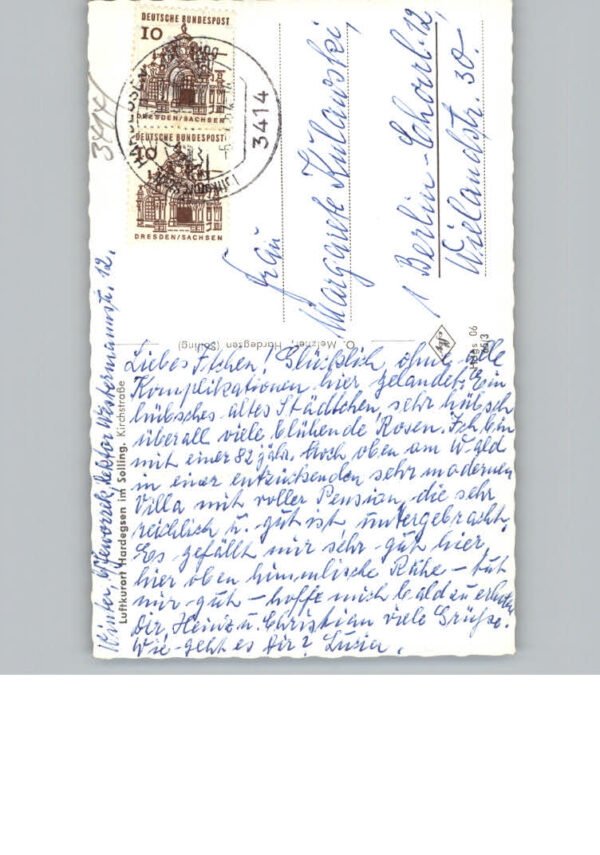 DEUTSCHE BUNDESPOST
10
DRESDEN/SACHSEN
DEUTSCHE BUNDESPOST
10
DRESDEN/SACHSEN
3414
3414
Frau
Margarete Kulawski,
1 Berlin-Charl. 12,
Wielandstr. 30.
O. Meizner, Hardegsen (Solling)
Agfa
06
65/3
Luftkurort Hardegsen im Solling. Kirchstraße
Winter, Rektor Westermannstr. 12.
Liebes! Glücklich ohne alle
Komplikationen hier gelandet. Ein
hübsches altes Städtchen, sehr hübsch
überall viele blühende Rosen. Ich bin
mit einer 82 jähr. hoch oben am Wald
in einer entzückenden sehr modernen
Villa mit voller Pension, die sehr
reichlich u. gut ist, untergebracht.
Es gefällt mir sehr gut hier,
hier oben himmlische Ruhe – tut
mir gut – hoffe mich bald zu erholen
Dir, Heinz u. Christian viele Grüße.
Wie geht es Dir? Luzia.